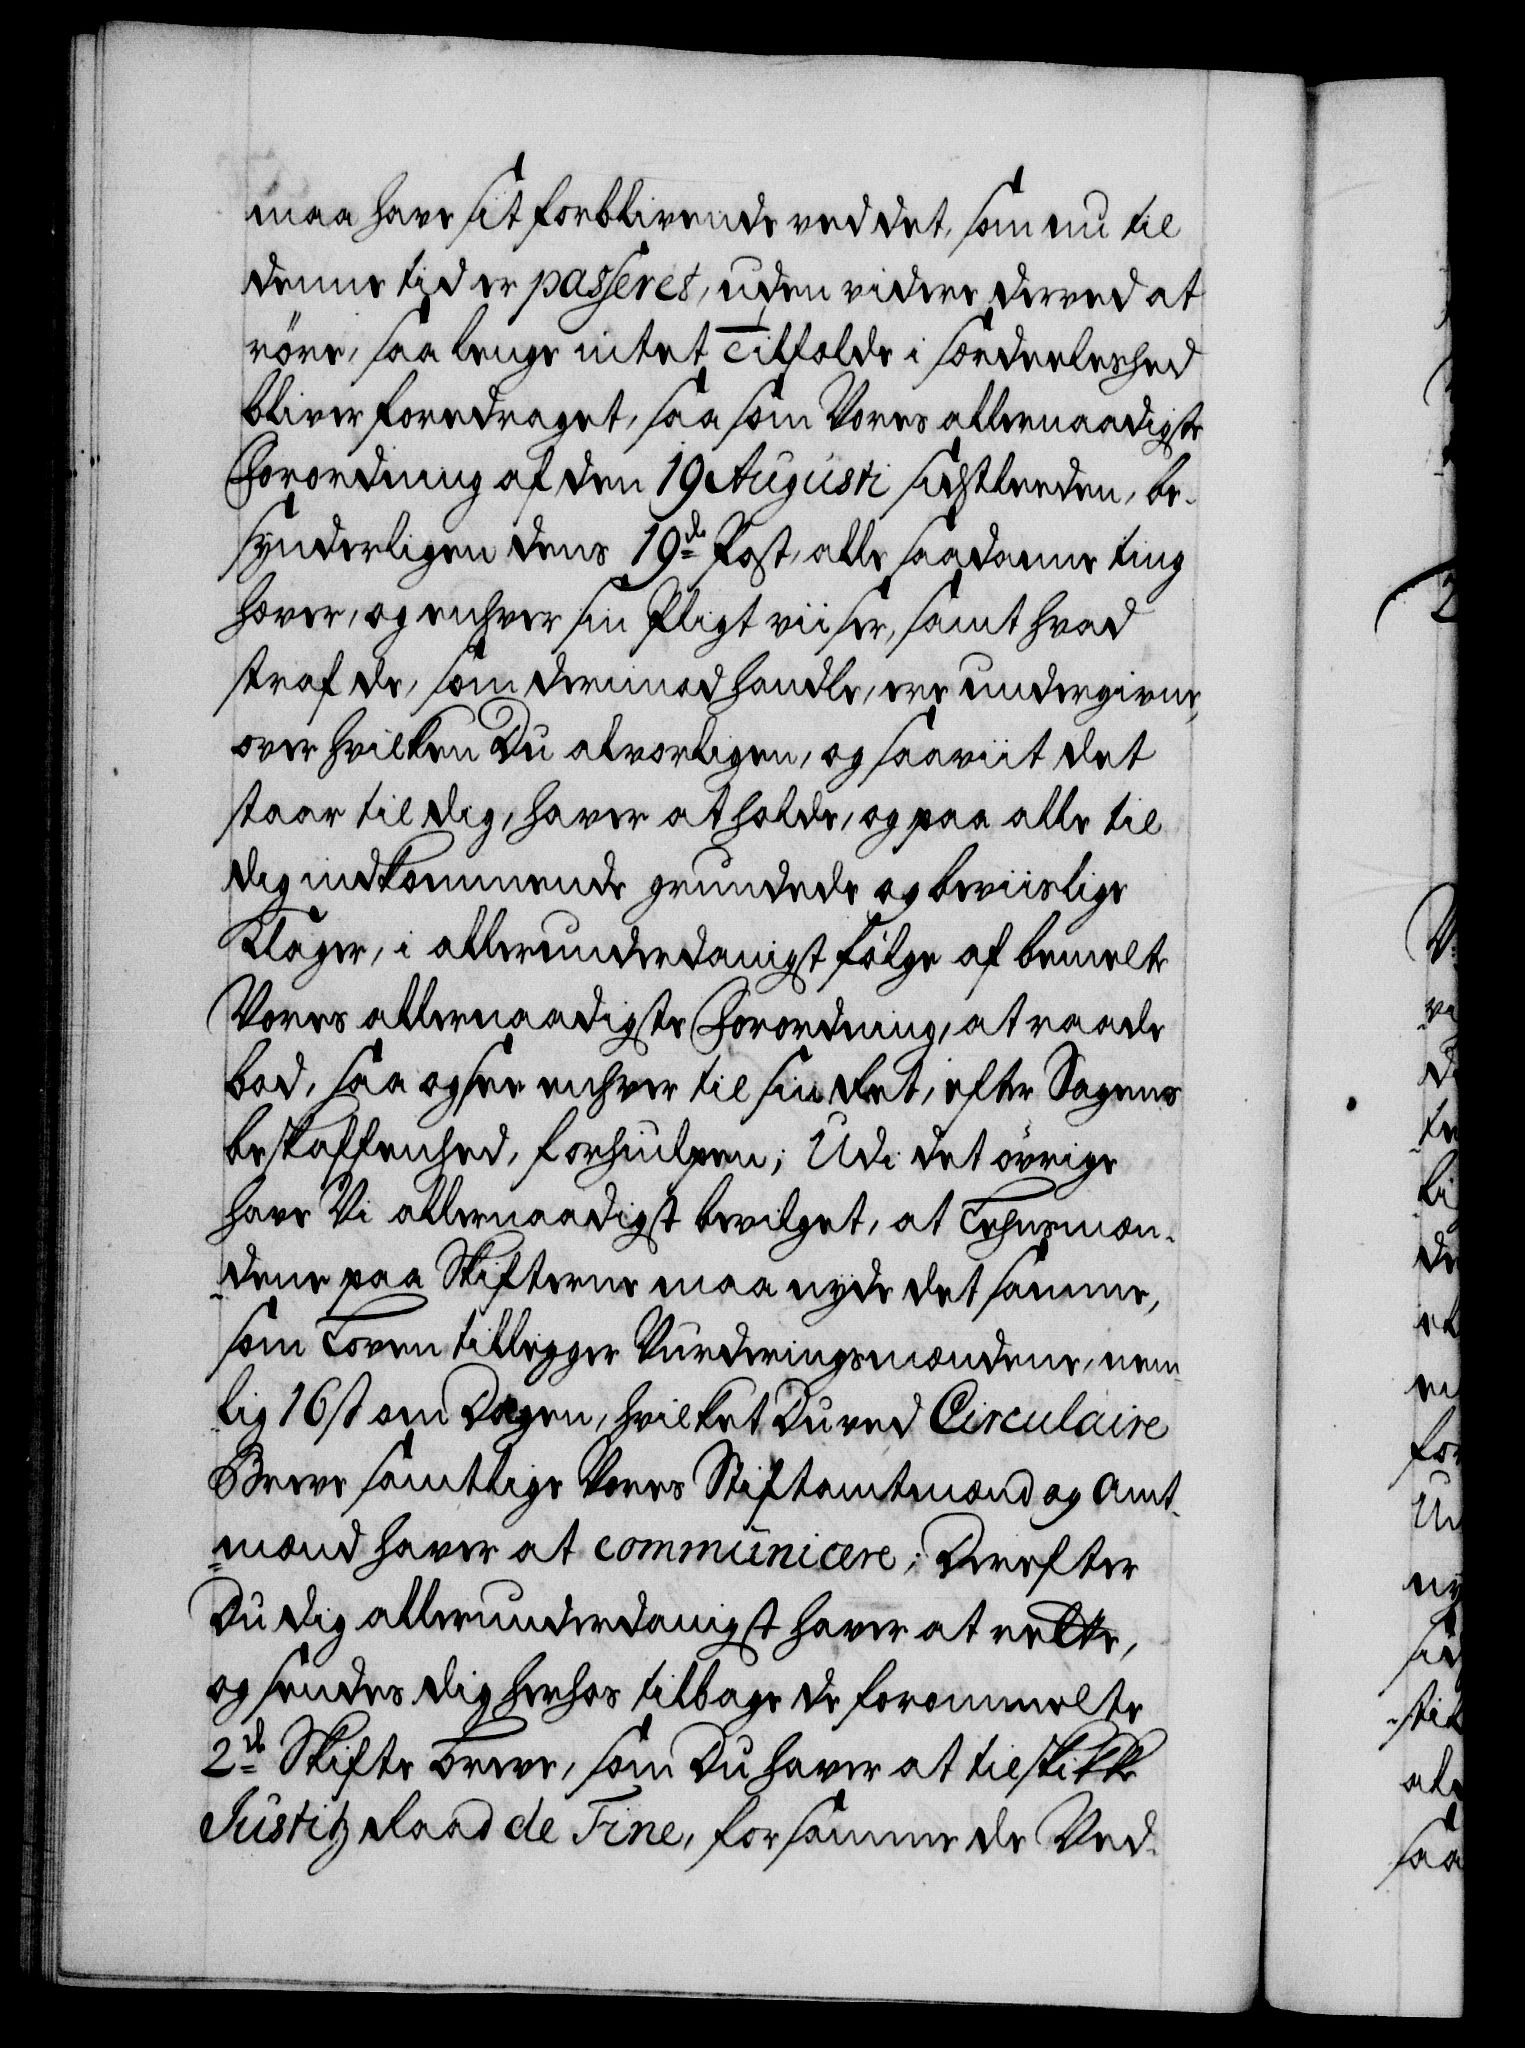 maa have sit forblivende ved det, som nu til
denne tid er passeret, uden videre derved at
röre, saa lenge intet Tilfælde i særdeleshed
bliver foredraget, saa som Vores allernaadigste
Forordning af den 19 Augusti sidstleeden, be-
synderligen dens 19de Post, alle saadanne ting
hæver, og enhver sin Pligt viiser, samt hvad
straf de, som derimod handle, ere undergivne,
over hvilken Du alvorligen, og saaviit det
staar til dig, haver at holde, og paa alle til
dig indkommende grundede og beviislige
Klager, i allerunderdanigst følge af bemelte
Vores allernaadigste Forordning, at raade
bod, saa og see enhver til sin Ret, efter Sagens
beskaffenhed, forhiulpen; Udi det övrige
have Vi allernaadigst bevilget, at Lehnsmæn-
dene paa Skifterne maa nyde det samme,
som Loven tillegger Vurderingsmændene, nem-
lig 16 s om Dagen, hvilket Du ved Circulaire
Breve samtlige Vores Stiftamtmænd og Amt-
mænd haver at communicere; Derefter
Du dig allerunderdanigst haver at rette,
og sendes dig herhos tilbage de forommelte
2de Skifte Breve, som Du haver at tilstille
Justitz Raad de Fine, for samme de Ved-